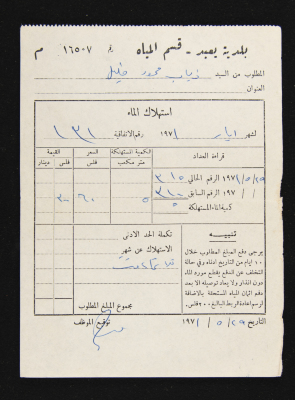 بلدية يعبد - قسم المياه نمرة ١٦٥٠٧ م
المطلوب من السيد ذياب محمود خليل
العنوان
استهلاك الماء
لشهر ايار ١٩٧١ رقم الاتفاقية ١٣١
قراءة العداد الكمية المستهلكة السعر القيمة
متر مكعب فلس فلس دينار
٢٩/٥/١٩٧١ الرقم الحالي ٣١٥
/ / ١٩٧ الرقم السابق ٣١٠ ٥ ٦٠ ٣٠٠
كمية الماء المستهلكة ٥
تنبيه
يرجى دفع المبلغ المطلوب خلال
١٠ ايام من التاريخ ادناه وفي حالة
التخلف عن الدفع يقطع مورد الماء
دون انذار ولا يعاد توصيله الا بعد
دفع اثمان المياه المستحقة بالاضافة
لرسم اعادة الربط البالغ ٢٠٠ فلس.
تكملة الحد الادنى
الاستهلاك عن شهر
مجموع المبلغ المطلوب
التاريخ ٢٩/٥/١٩٧١ توقيع الموظف